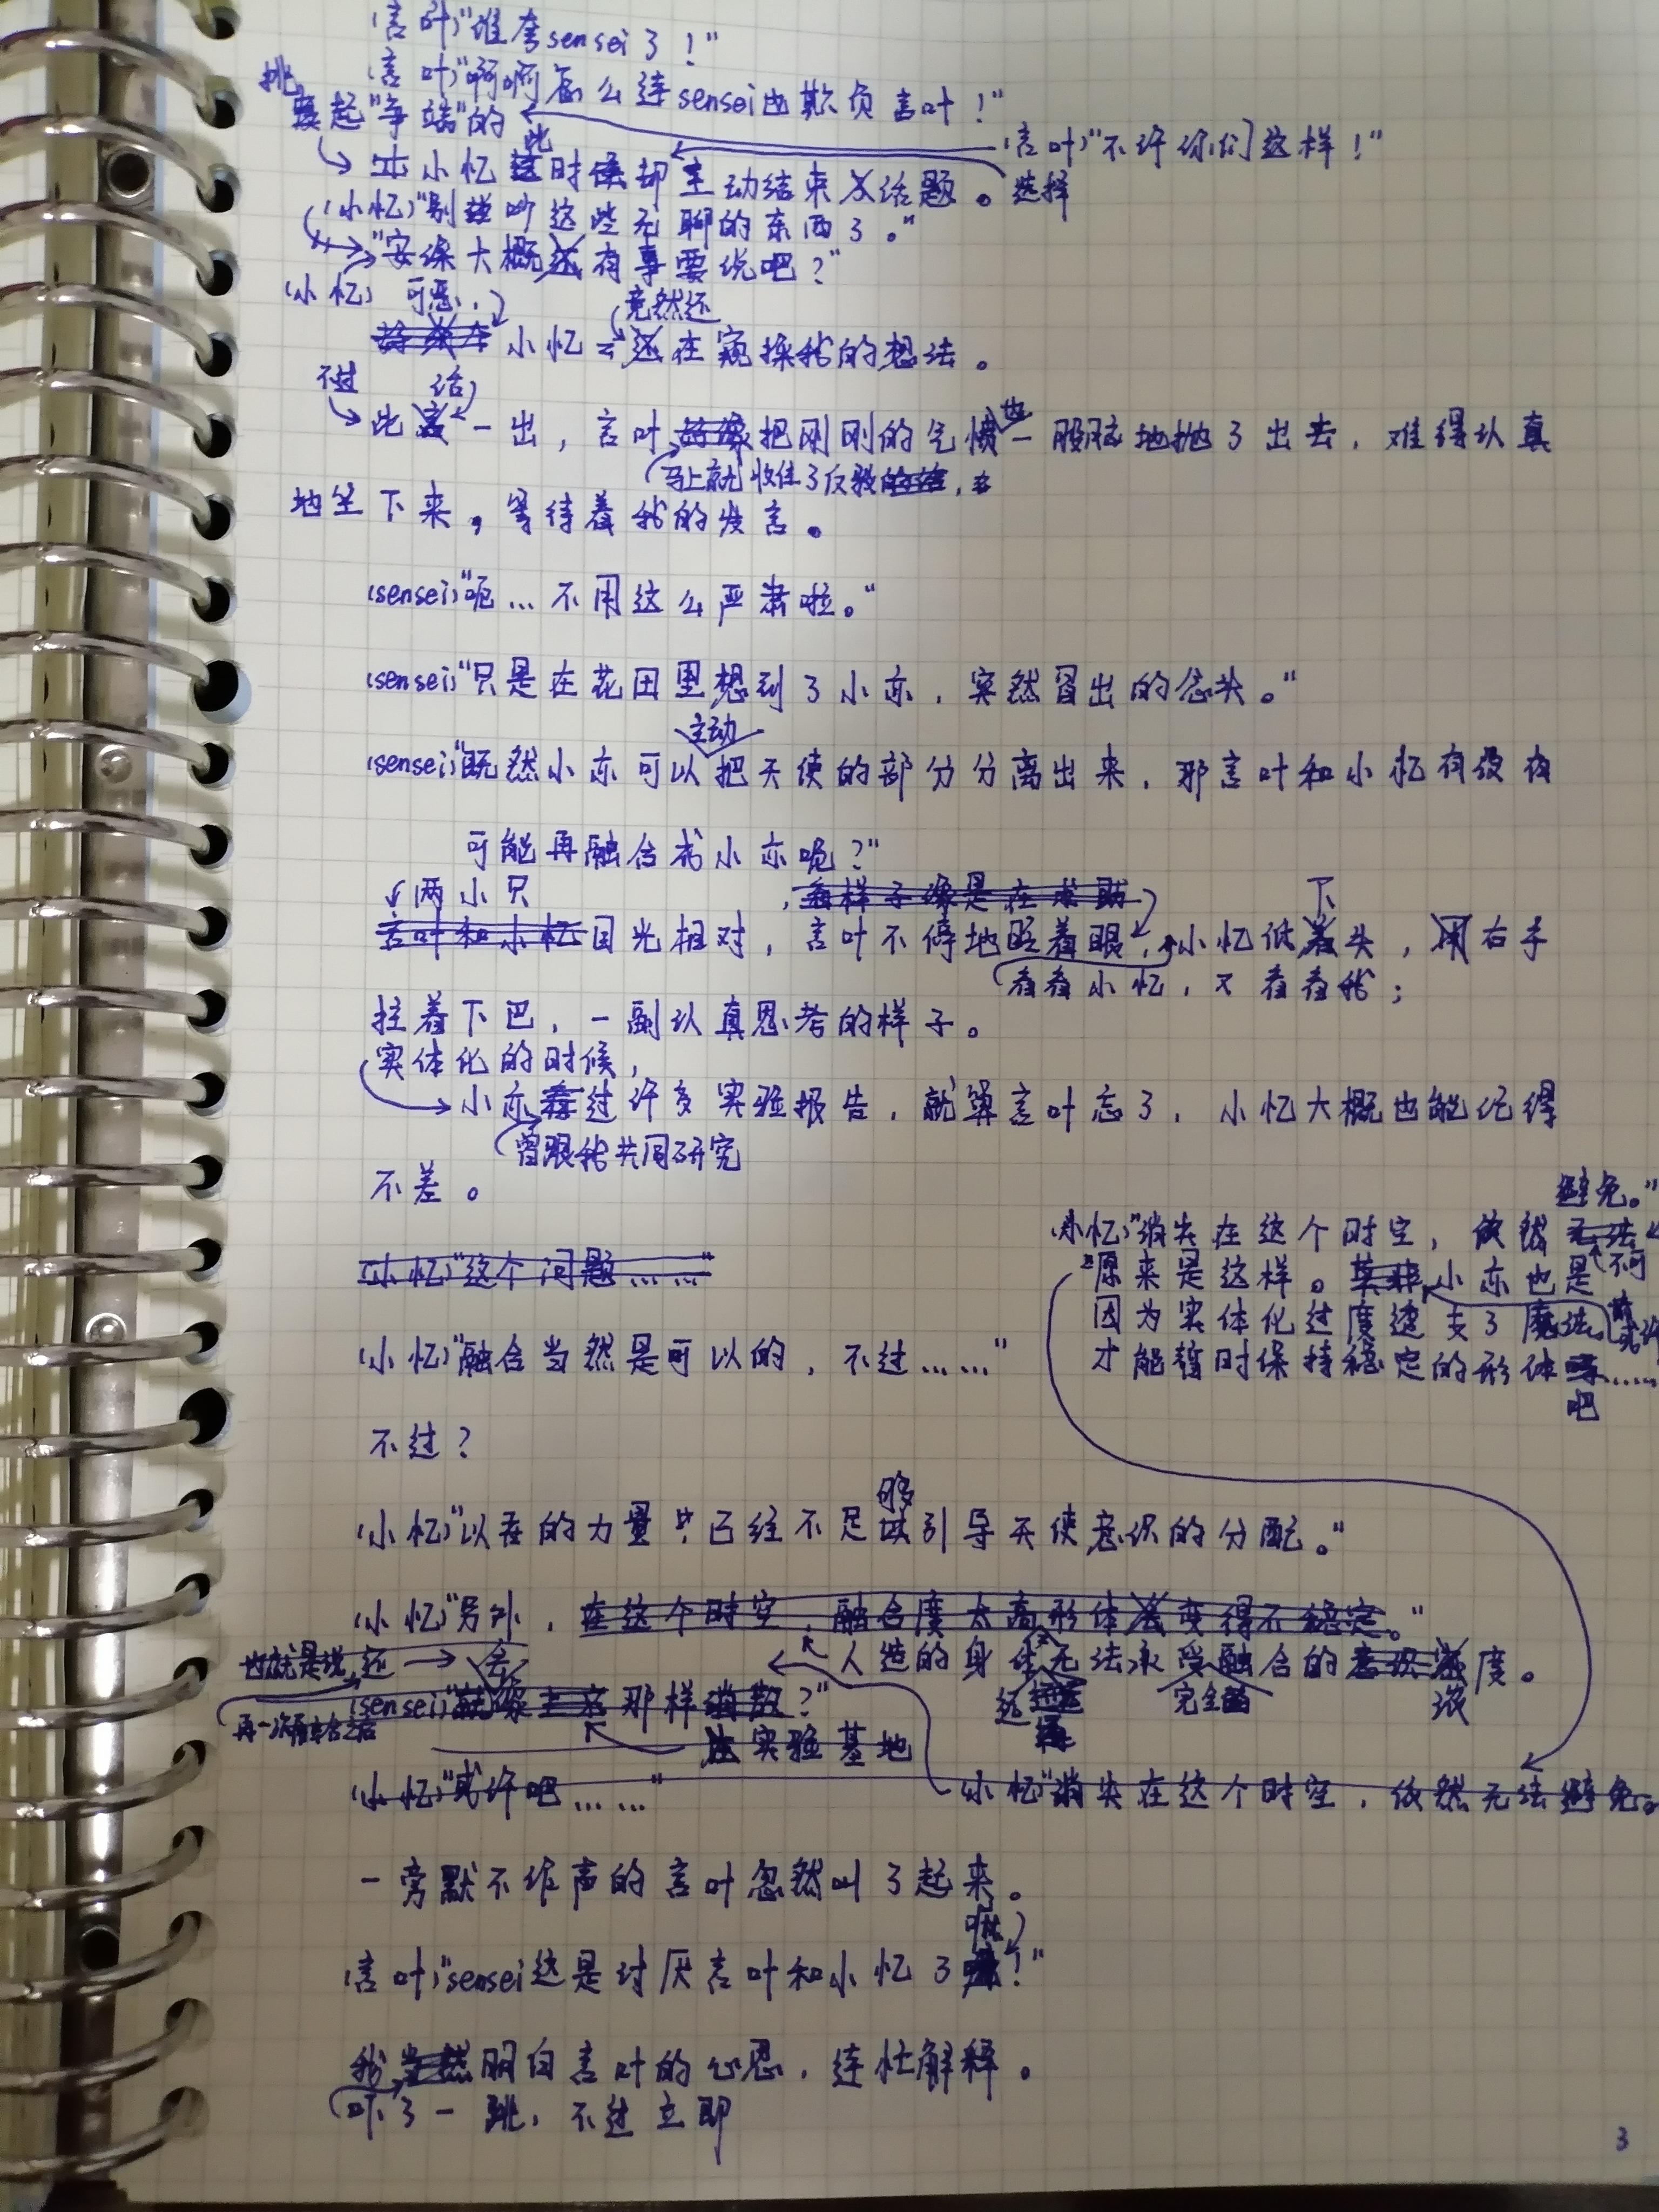 (言叶)"谁夸sensei了！"
(言叶)"啊啊怎么连sensei也欺负言叶！"
挑
起"争端"的
(言叶)"不许你们这样！"
此
小忆这时候却主动结束话题。选择
(小忆)"别吵这些无聊的东西了。"
"安保大概还有事要说吧？"
(小忆) 可恶，
竟然还
小忆还在窥探我的想法。
不过 话
此言一出，言叶好像把刚刚的气愤一股脑地抛了出去，难得认真
也
马上就收住了反驳
地坐下来，等待着我的发言。
(sensei)"呃…不用这么严肃啦。"
(sensei)"只是在花田里想到了小亦，突然冒出的念头。"
主动
(sensei)"既然小亦可以把天使的部分分离出来，那言叶和小忆有没有
可能再融合成小亦呢？"
两小只
，看样子像是在求助
下
言叶和小忆目光相对，言叶不停地眨着眼，小忆低着头，用右手
看看小忆，又看看我；
拄着下巴，一副认真思考的样子。
实体化的时候，
小亦看过许多实验报告，就算言叶忘了，小忆大概也能记得
曾跟我共同研究
不差。
避免。"
(小忆)"消失在这个时空，依然无法
不可
(小忆)"这个问题……"
"原来是这样。莫非小亦也是
因为实体化过度透支了魔法，
(小忆)"融合当然是可以的，不过……"
才能暂时保持稳定的形体……
吧
不过？
够
(小忆)"以吞的力量，已经不足以引导天使意识的分配。"
(小忆)"另外，在这个时空，融合度太高形体会变得不稳定。"
人造的身体无法承受融合的度。
也就是说，还 会
还 完全
(sensei)"就像那样消散？"
再一次融合之后
实验基地
(小忆)"或许吧……"
(小忆)"消失在这个时空，依然无法避免。
一旁默不作声的言叶忽然叫了起来。
啦
(言叶)"sensei这是讨厌言叶和小忆了！"
我当然明白言叶的心思，连忙解释。
吓了一跳，不过立即
3